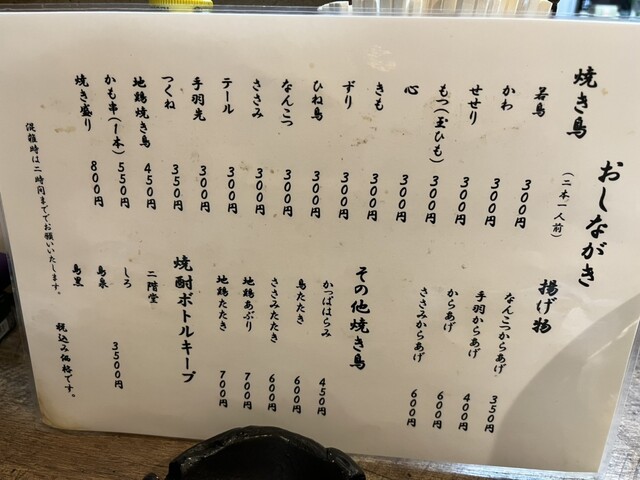 おしながき
焼き鳥
(二本一人前)
若鳥 300円
かわ 300円
せせり 300円
もつ(玉ひも) 300円
心 300円
きも 300円
ずり 300円
ひね鳥 300円
なんこつ 300円
ささみ 300円
テール 300円
手羽先 300円
つくね 350円
地鶏焼き鳥 450円
かも串(1本) 550円
焼き盛り 800円
揚げ物
なんこつからあげ 350円
手羽からあげ 400円
からあげ 600円
ささみからあげ 600円
その他焼き鳥
かっぱはらみ 450円
鳥たたき 600円
ささみたたき 600円
地鶏あぶり 700円
地鶏たたき 700円
焼酎ボトルキープ
二階堂
しろ 3500円
島泉
島黒
混雑時は二時間まででお願いいたします。
税込み価格です。